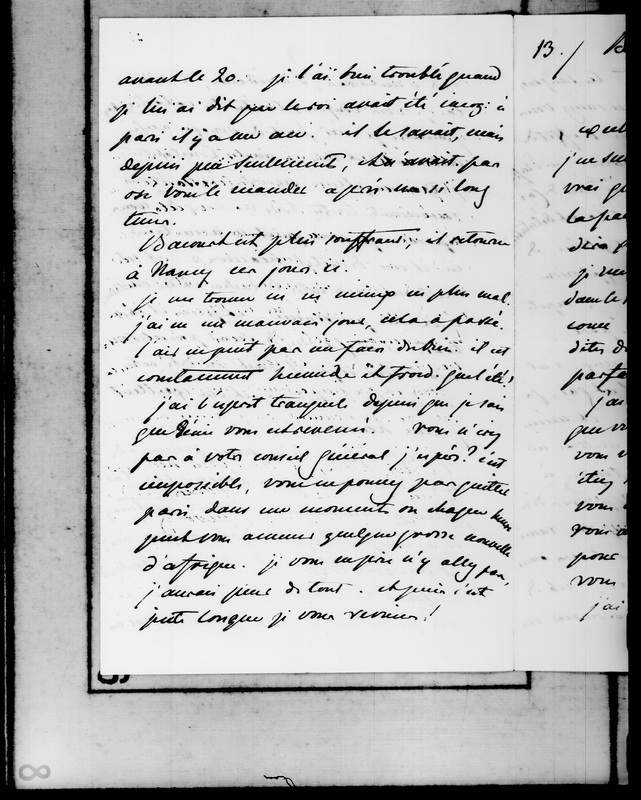 avant le 20. je l'ai bien troublé quand
je lui ai dit que le roi avait été incog: à
paris il y a un an. il le savait, mais
depuis peu seulement, et n'avait pas
osé vous le mander après un si long
tems.
Bacourt est plus souffrant, il retourne
à Nancy ces jours ci.
je me trouve ni mieux ni plus mal.
j'ai eu une mauvais jour, cela a passé.
l'air ne peut pas me faire du bien. il est
constamment humide et froid. quel été!
j'ai l'esprit tranquile depuis que je sais
que Génie vous est revenu. vous n'irez
pas à votre conseil général j'espère? c'est
impossible, vous ne pouvez pas quitter
paris dans un moment où chaque heure
peut vous amener quelque grosse nouvelle
d'afrique. je vous en prie n'y allez pas,
j'aurais peur de tout. et puis c'est
juste lorsque je vous reviens!
13. /
j'ai
vous
pour
vous
j'ai